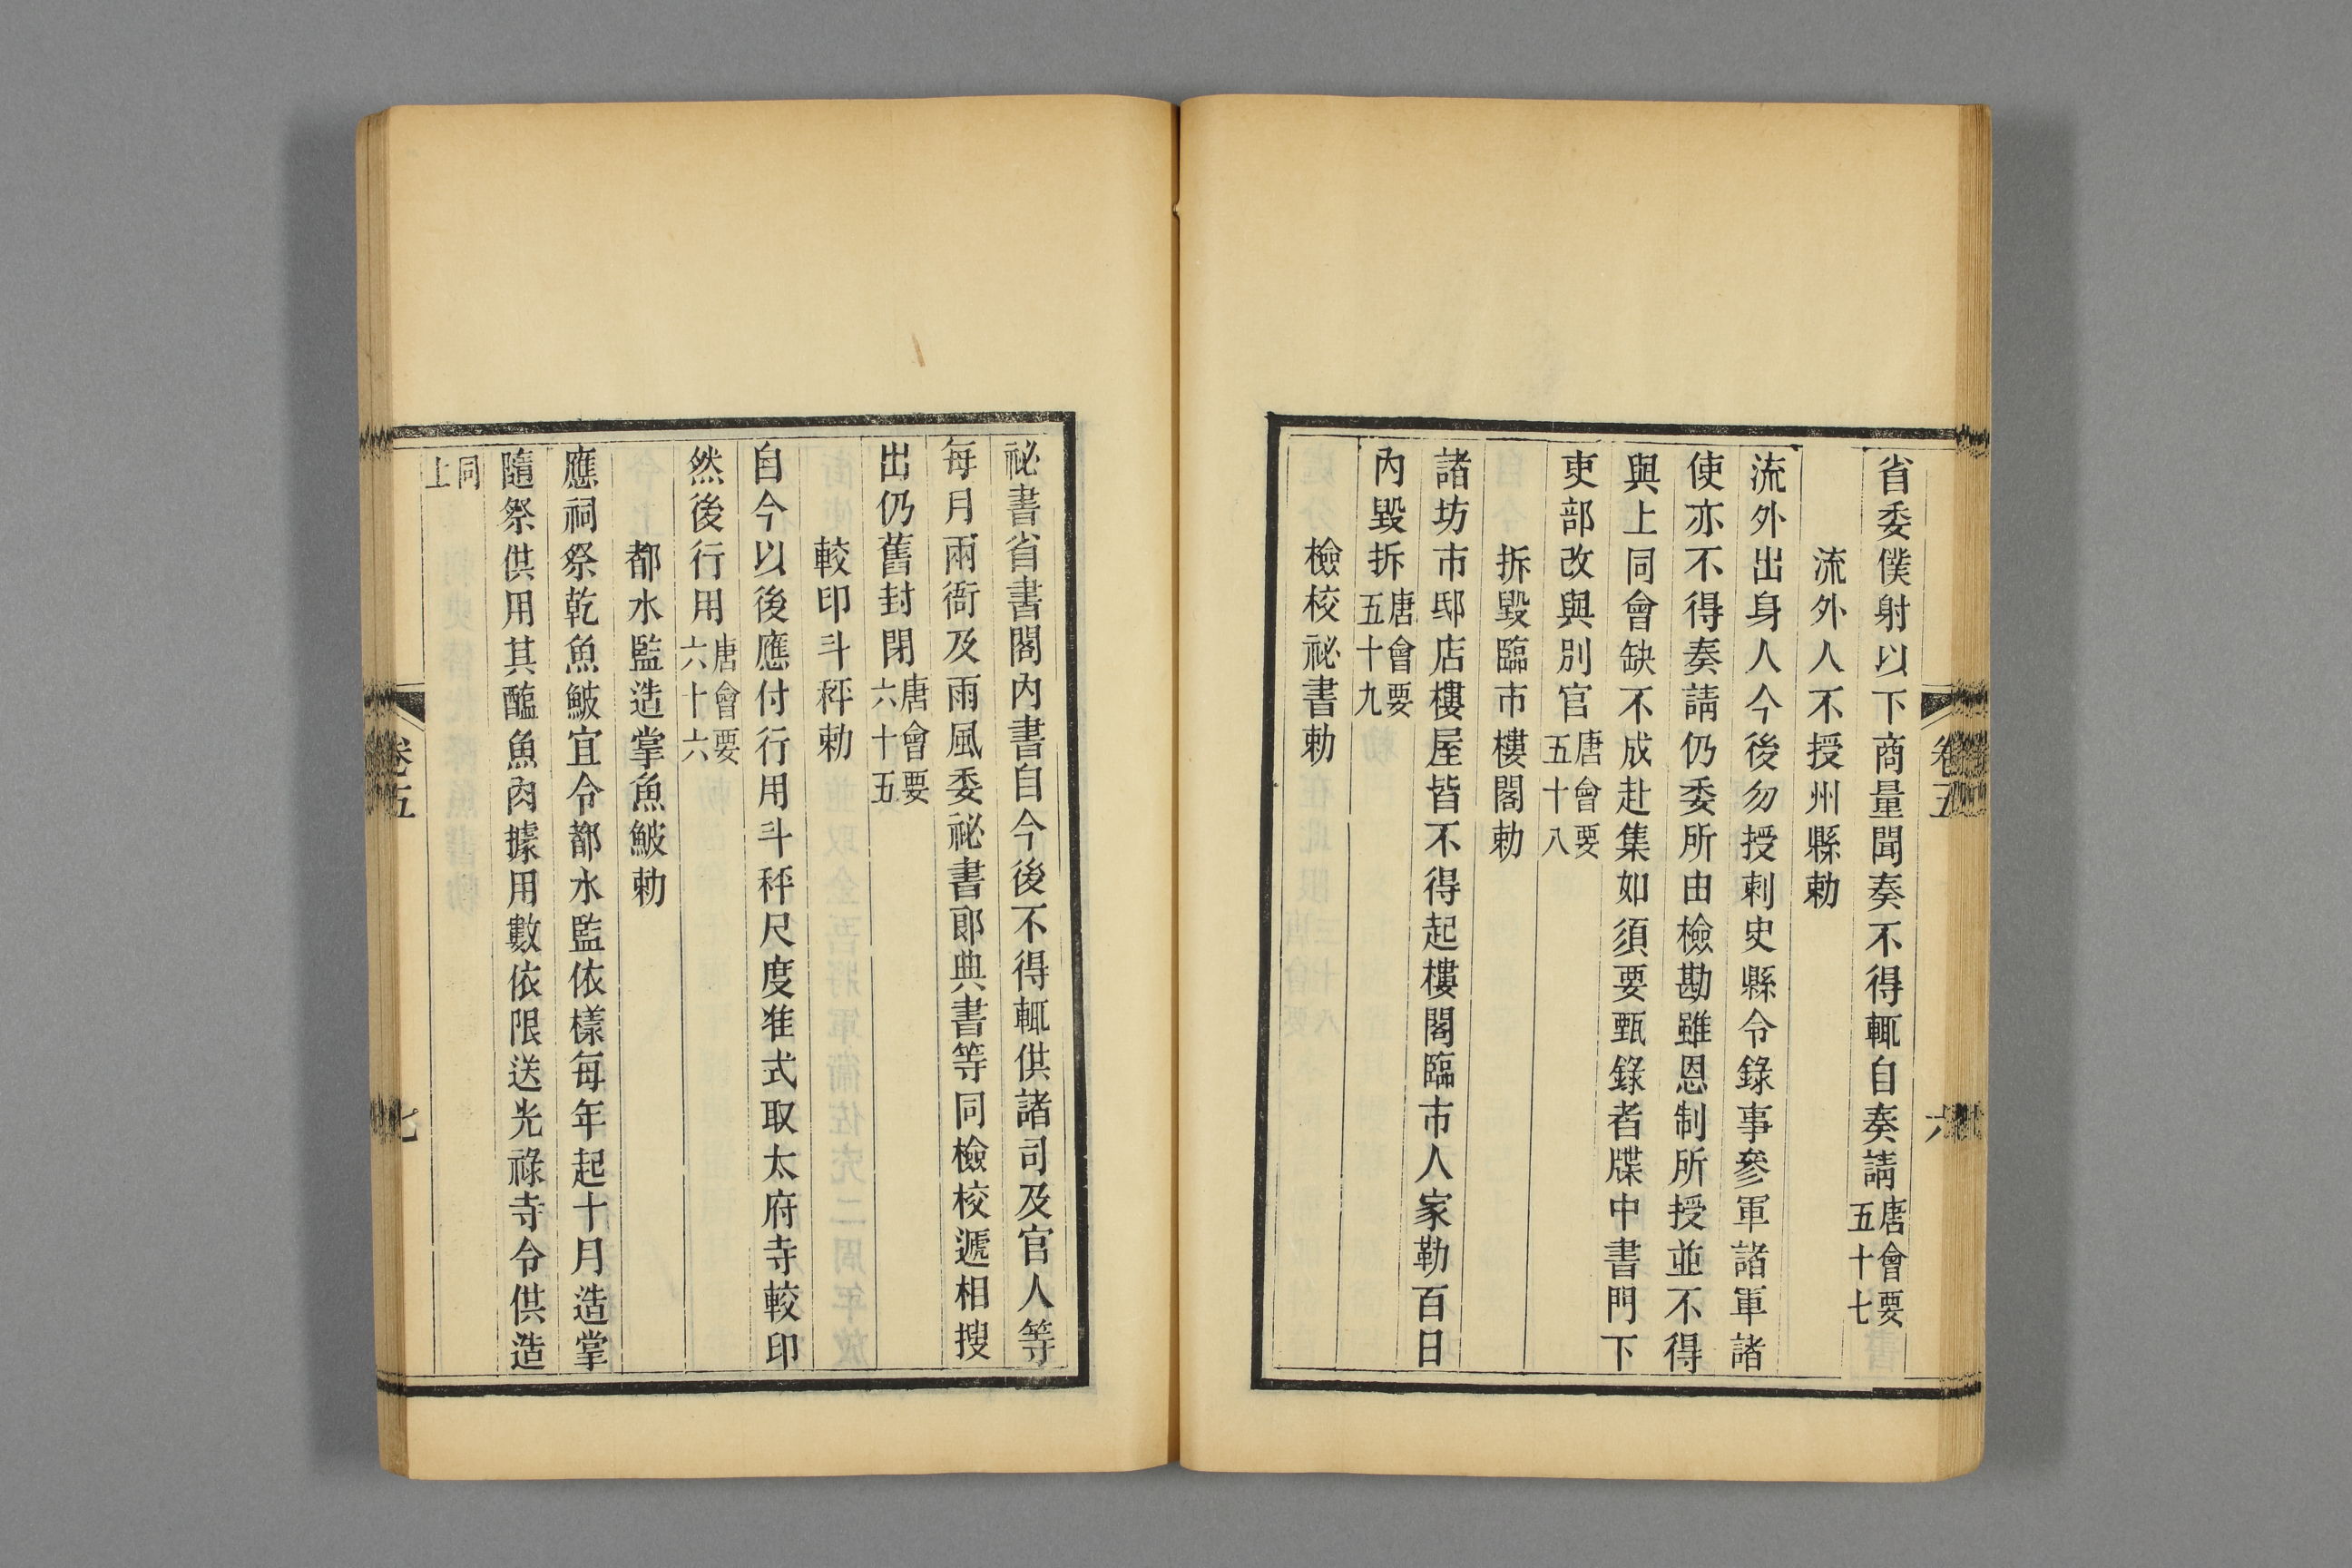 省委僕射以下商量聞奏不得輒自奏請唐會要五十七
流外人不授州縣勅
流外出身人今後勿授刺史縣令錄事參軍諸軍諸
使亦不得奏請仍委所由檢勘雖恩制所授並不得
與上同會缺不成赴集如須要甄錄者牒中書門下
吏部改與別官唐會要五十八
拆毀臨市樓閣勅
諸坊市邸店樓屋皆不得起樓閣臨市人家勒百日
內毀拆唐會要五十九
檢校祕書勅
卷五
六
祕書省書閣內書自今後不得輒供諸司及官人等
每月兩衙及雨風委祕書郎典書等同檢校遞相搜
出仍舊封閉唐會要六十五
較印斗秤勅
自今以後應付行用斗秤尺度准式取太府寺較印
然後行用唐會要六十六
都水監造掌魚鮍勅
應祠祭乾魚鮍宜令都水監依樣每年起十月造掌
隨祭供用其醢魚肉據用數依限送光祿寺令供造
同上
卷五
七